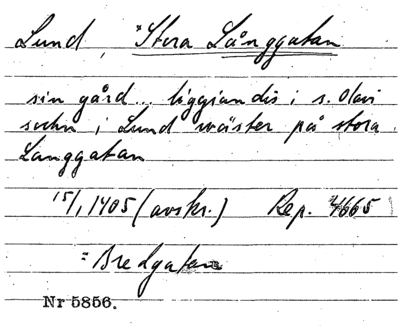 Lund, *Stora Långgatan
sin gård... liggiandis i s. Olai
sokn i Lund wäster på stora
Langgatan
15/1 1405 (avskr.) Rep. 4665
= Bredgatan
Nr 5856.